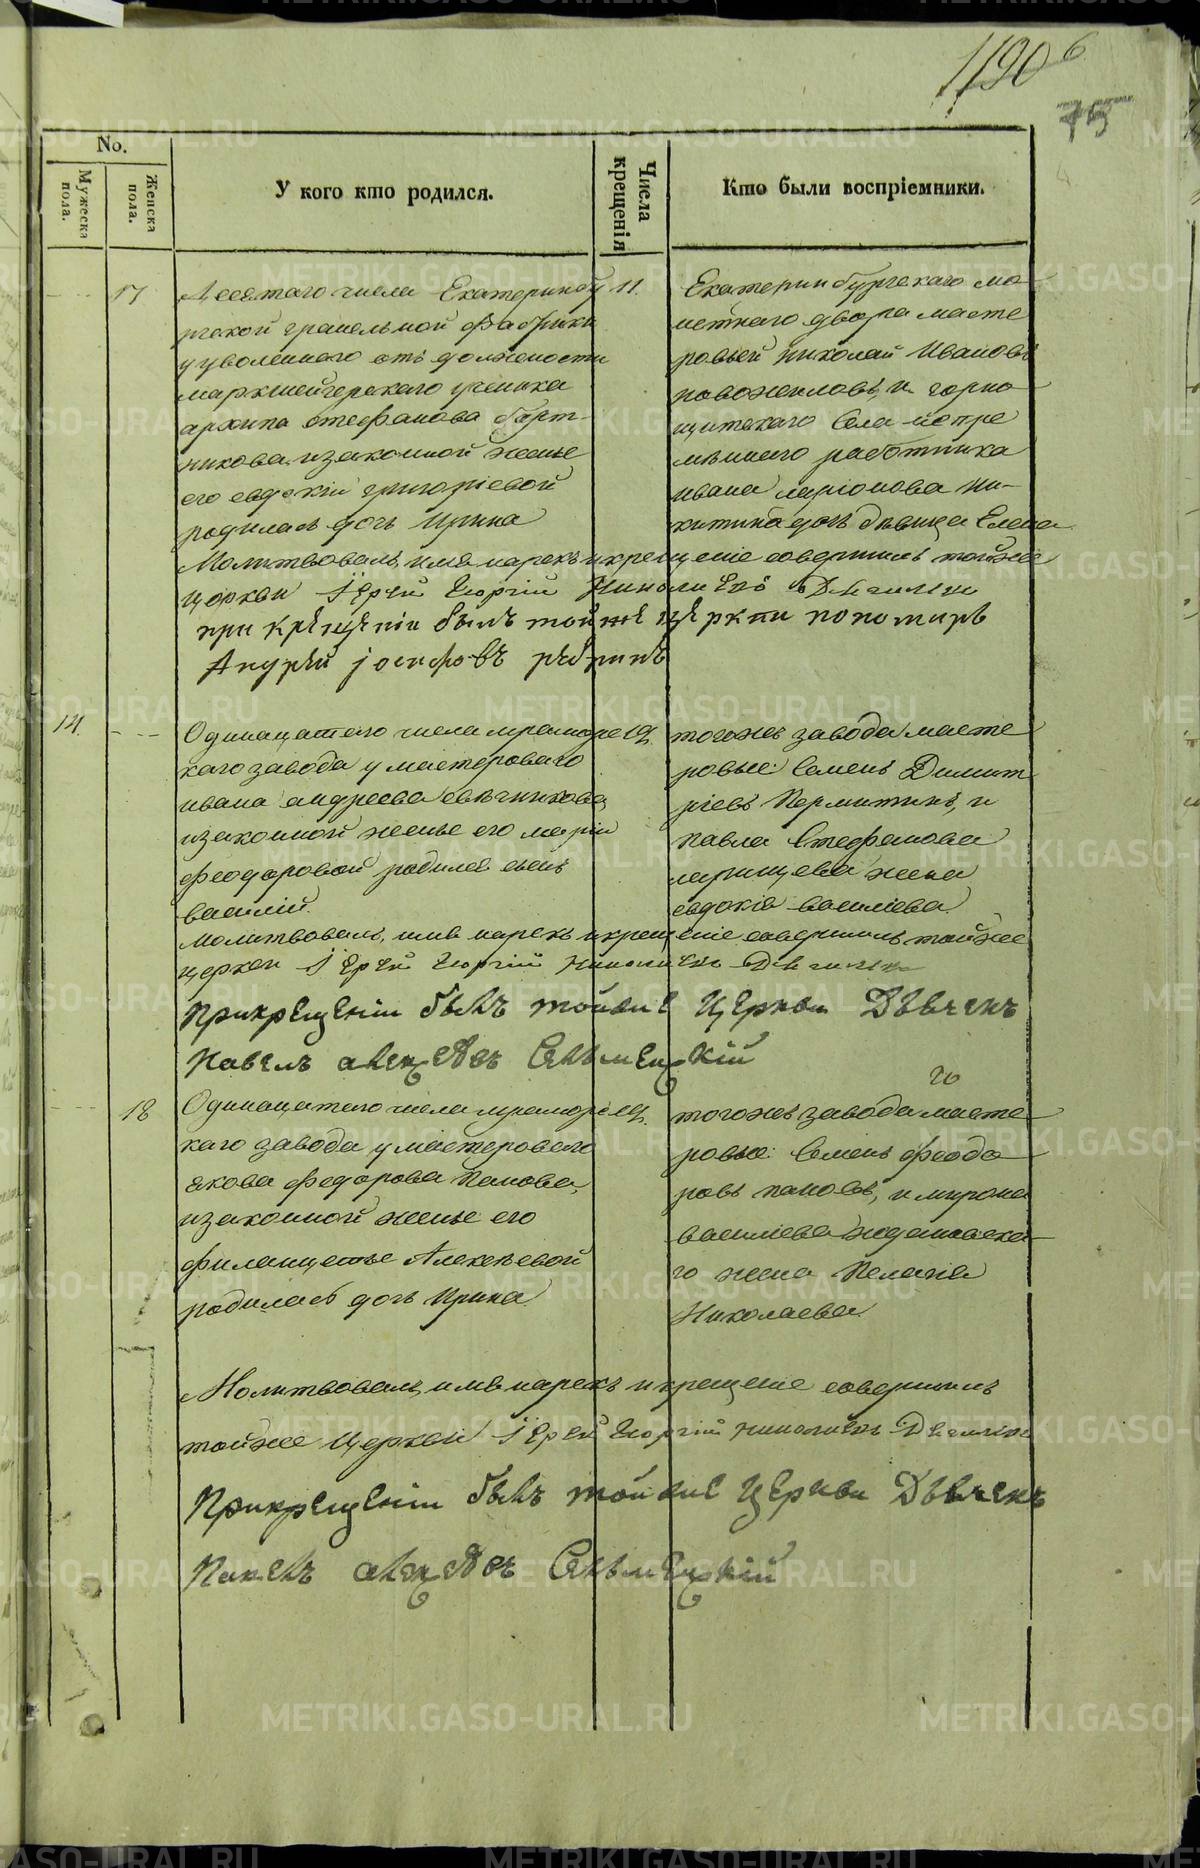 1190 б
75
No.
Мужеска пола.
Женска пола.
У кого кто родился.
Числа крещенія
Кто были воспріемники.
17
Десятаго числа Екатеринбу
ргской гранильной фабрики
у уволеннаго отъ должности
маркшейгерскаго ученика
архипа стефанова бурт-
никова изаконной жены
его евдокіи григоріевой
родилась дочь Ирина
11.
Екатеринбургскаго мо-
нетнаго двора масте
ровый николай Ивановъ
новожиловъ, и горно
щитскаго села непре
мѣннаго работника
ивана ларіонова ни-
китина дочь дѣвица Елена
Молитвовалъ, имя нарекъ и крещеніе совершилъ тойже
церкви Іерей Георгій
при крещеніи былъ той же церкви пономарь
Андрей іосифовъ
14.
Одинацатого числа мраморс
каго завода у мастероваго
ивана андреева свѣчникова
изаконной жены его маріи
феодоровой родился сынъ
василій.
тогожъ завода масте
ровые: Семенъ Димит
ріевъ Пермитинъ, и
павла Стефанова
жена
евдокія василіева
молитвовалъ, имя нарекъ и крещеніе совершилъ тойже
церкви Іерей Георгій
Прикрещеніи былъ той же Церкви Дьячекъ
Павелъ
18
Одинацатого числа мраморс
каго завода у мастероваго
якова федорова Панова,
изаконной жены его
Алексѣевой
родилась дочь Ирина
го
тогожъ завода масте
ровые: Семенъ феодо
ровъ пановъ, и мирона
василіева ждановска
го жена Пелагія
Николаева
Молитвовалъ, имя нарекъ и крещеніе совершилъ
тойже Церкви Іерей Георгій
Прикрещеніи былъ той же Церкви Дьячекъ
Павелъ
METRIKI.GASO-URAL.RU